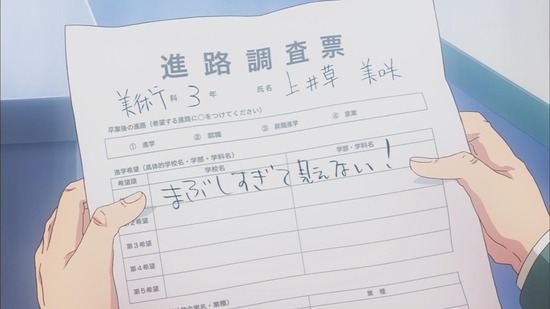 進路調査票
美術科 3年 氏名 上井草 美咲
卒業後の進路(希望する進路に○をつけてください)
① 進学 ② 就職 ③ 就職進学 ④ 家業
進学希望(具体的学校名・学部・学科名)
希望順 学校名 学部・学科名
まぶしすぎて見えない!
第2希望
第3希望
第4希望
第5希望
業種